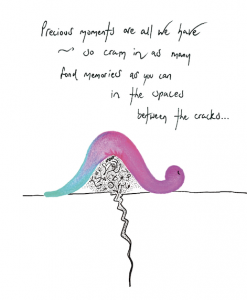 Precious moments are all we have
~ so cram in as many
fond memories as you can
in the spaces
between the cracks...